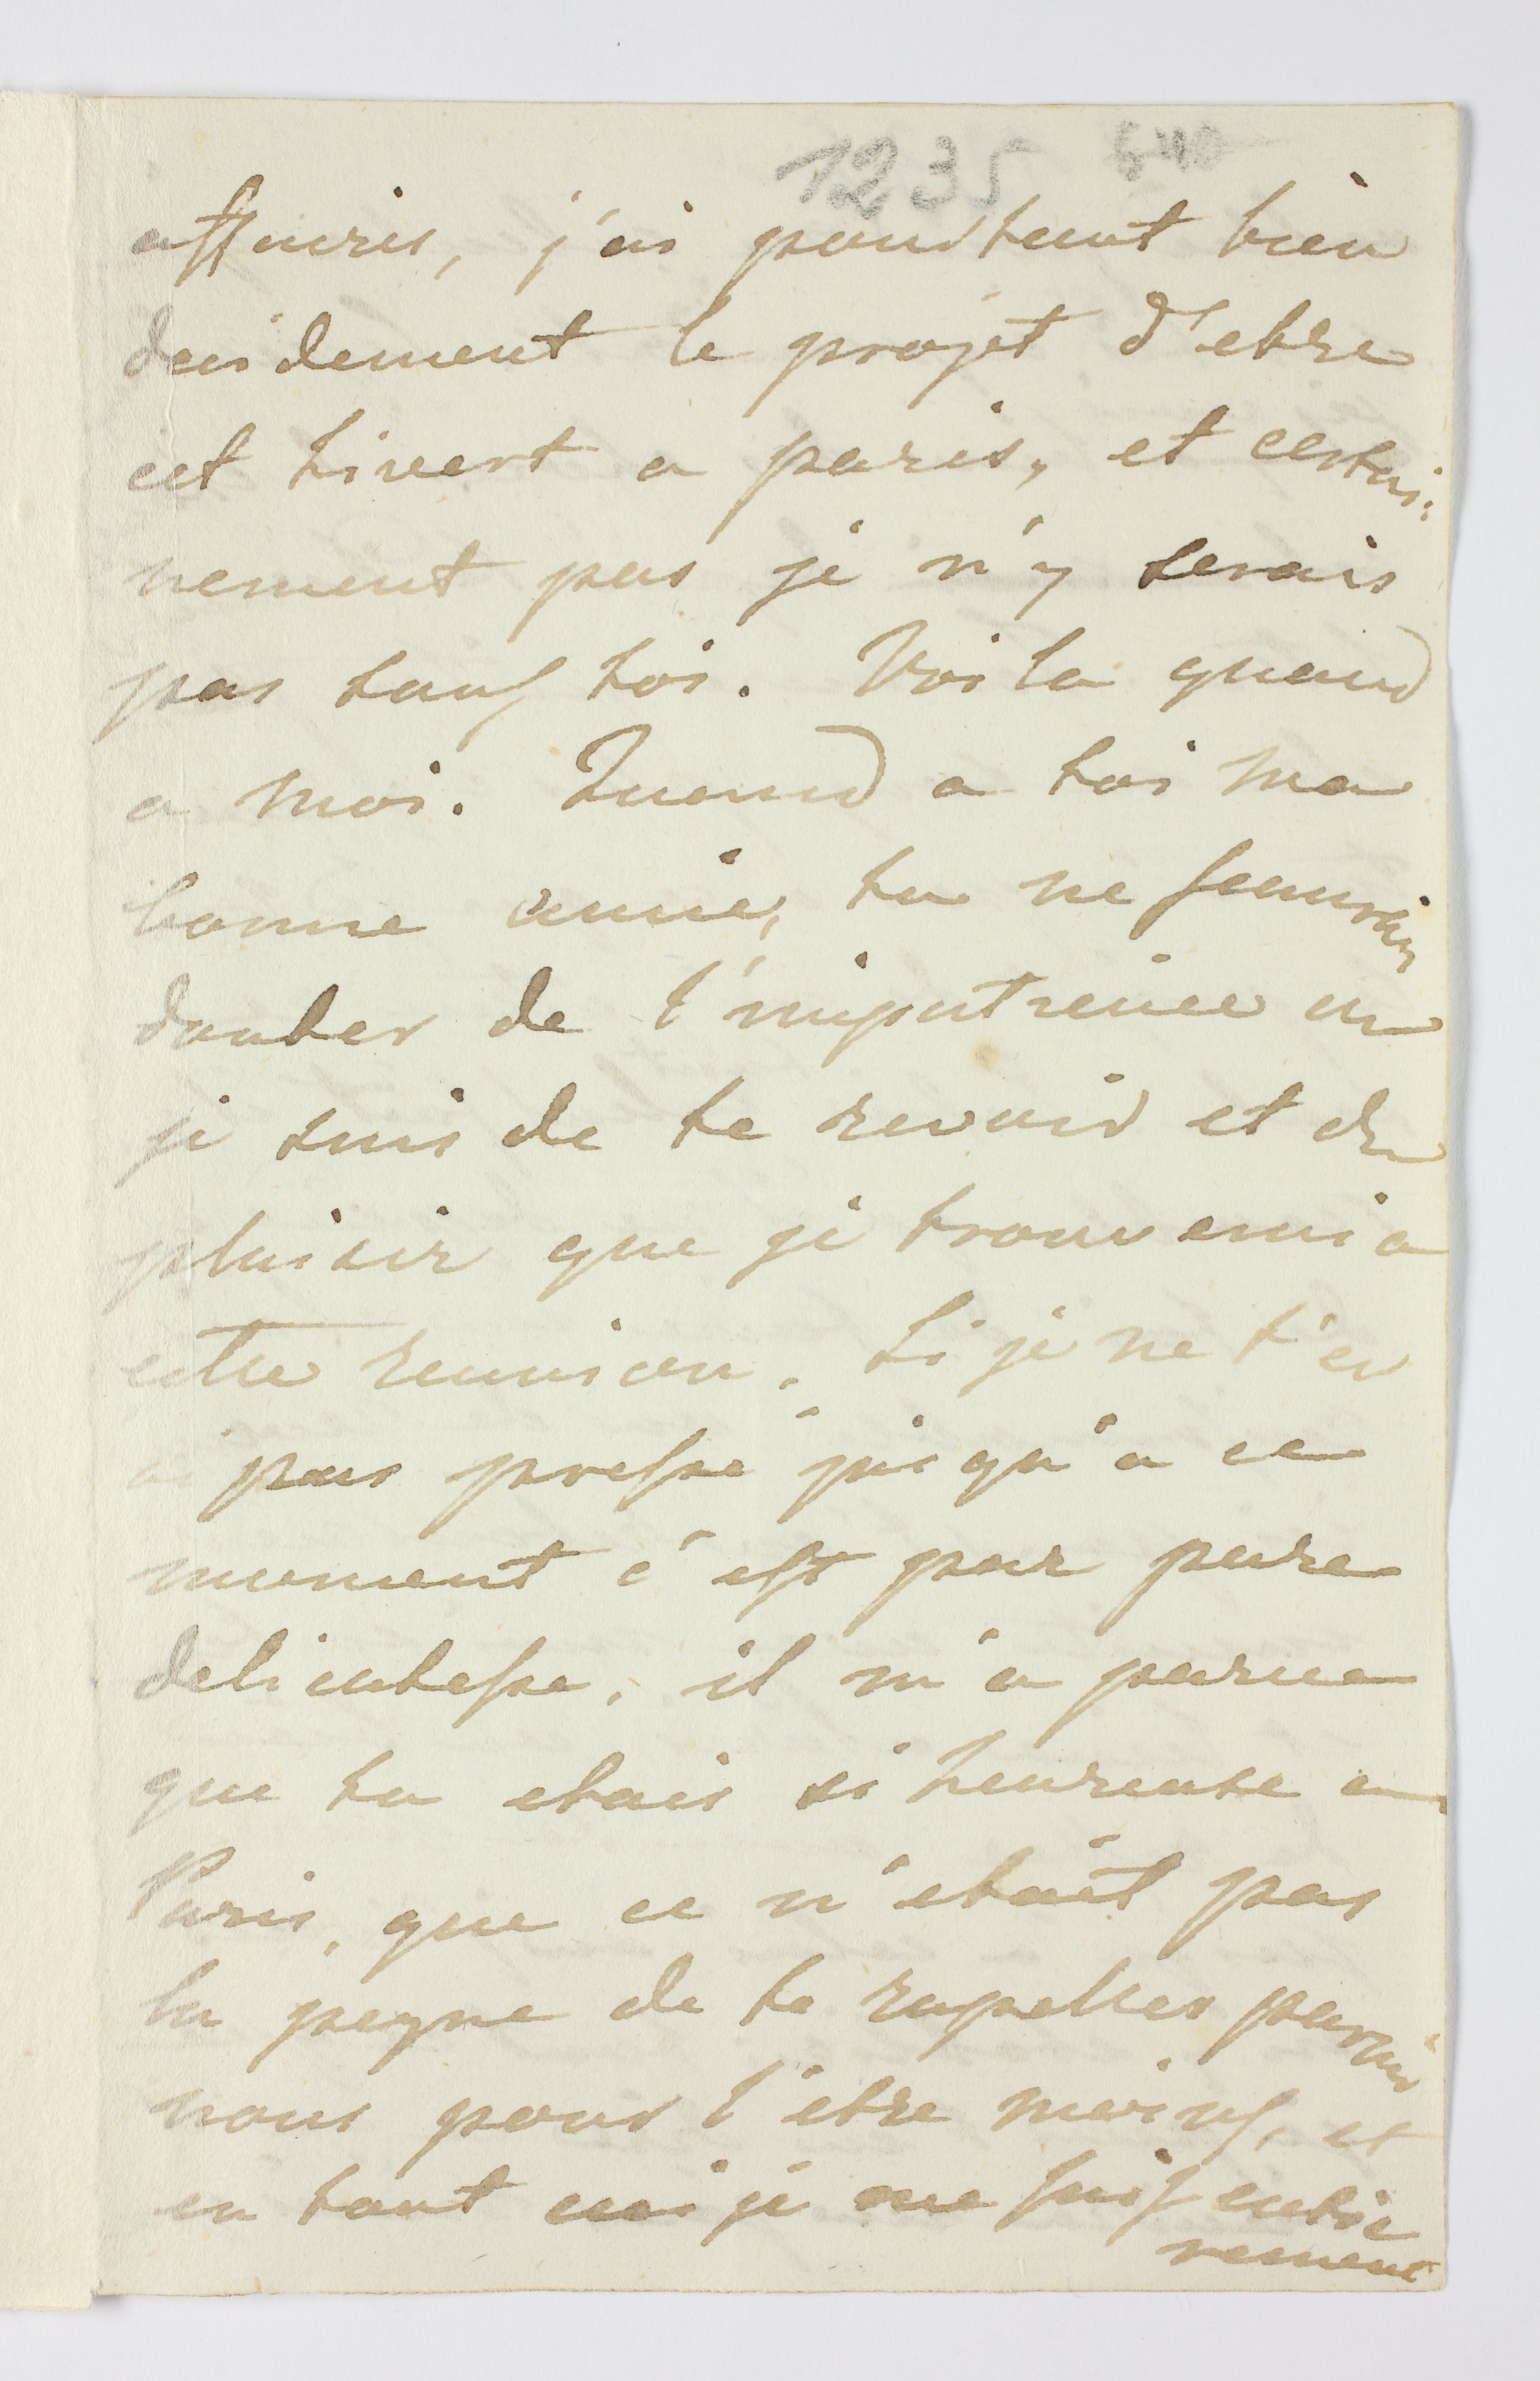 1235 540
affairis, j'ai pourtant bien
decidement le projet d'etre
cet hivert a paris, et certai:
nement pas je n'y serais
pas sans toi. Voila quand
a moi. Quand a toi ma
bonne amie, tu ne scaurais
douter de l'impatience ou
je suis de te revoir et du
plaisir que je trouverais a
cette reunion. Si je ne t'en
ai pas presse jusqu'a ce
moment c'est par pure
delicatesse, il m'a parue
que tu etais si heureuse a
Paris, que ce n'etait pas
la peyne de te rapeller parmis
nous pour l'etre moins, et
en tout ceci je me suis entie
rement